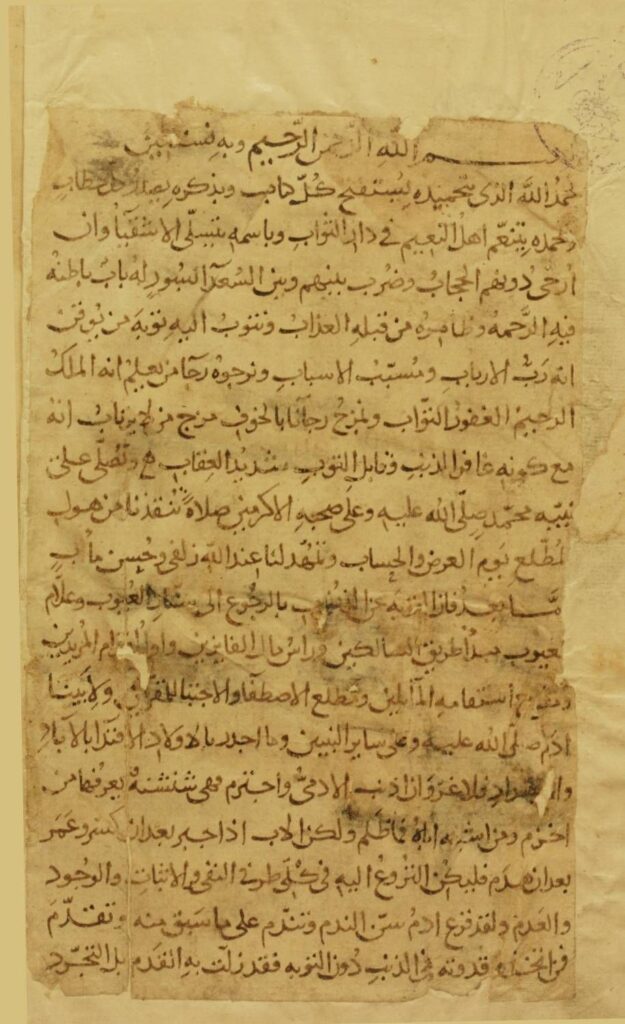 بسم الله الرحمن الرحيم وبه نستعين
نحمد الله الذى بتحميده يستفتح كل كتاب وبذكره يصدر كل خطاب
وبحمده يتنعم اهل النعيم فى دار الثواب وباسمه يتسلى الاشقيآ وان
ارخى دونهم الحجاب وضرب بينهم وبين السعدآ بسور له باب باطنه
فيه الرحمة وظاهره من قبله العذاب ونتوب اليه توبة من يوقن
انه رب الارباب ومسبب الاسباب ونرجوه رجآ من يعلم انه الملك
الرحيم الغفور التواب ونمزج رجآنا بالخوف مزج من لا يرتاب انه
مع كونه غافر الذنب وقابل التوب شديد العقاب ونصلى على
نبيه محمد صلى الله عليه وعلى صحبه الاكرمين صلاة تنقذنا من هول
المطلع يوم العرض والحساب وتمهد لنا عند الله زلفى وحسن مآب
اما بعد فان التوبة عن الذنوب بالرجوع الى ستار العيوب وعلام
الغيوب مبدأ طريق السالكين وراس مال الفايزين واول اقدام المريدين
ومفتاح استقامة المآيلين ومطلع الاصطفآ والاجتبآ للمقربين ولابينا
ادم صلى الله عليه وعلى ساير النبيين وما اجدر بالاولاد الاقتدآ بالابآ
والاجداد فلا غرو ان اذنب الادمى واجترم فهى شنشنة يعرفها من
اخزم ومن اشبه اباه فما ظلم ولكن الاب اذا جبر بعد ان كسر وعمر
بعد ان هدم فليكن النزوع اليه فى كلى طرفى النفى والاثبات والوجود
والعدم ولقد قرع ادم سن الندم وتندم على ما سبق منه وتقدم
فمن اتخذه قدوة فى الذنب دون التوبه فقد زلت به القدم بل التجرد